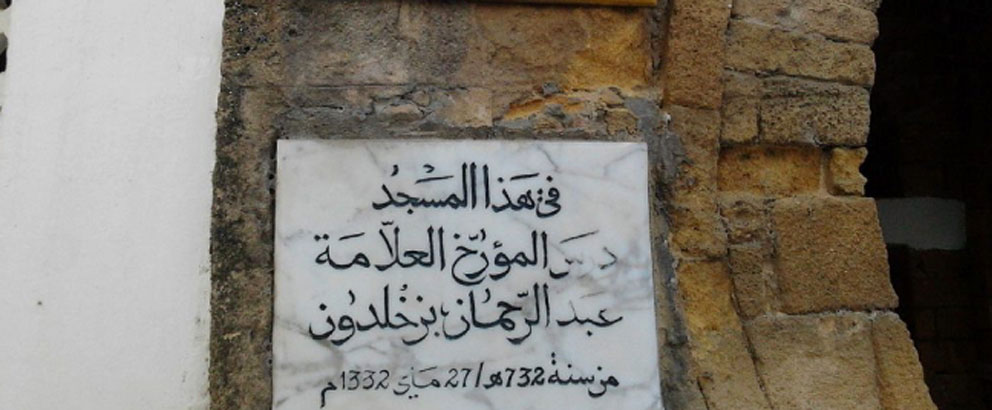 في هذا المسجد
درس المؤرخ العلامة
عبد الرحمان بن خلدون
من سنة 732هـ/27 ماي 1332م